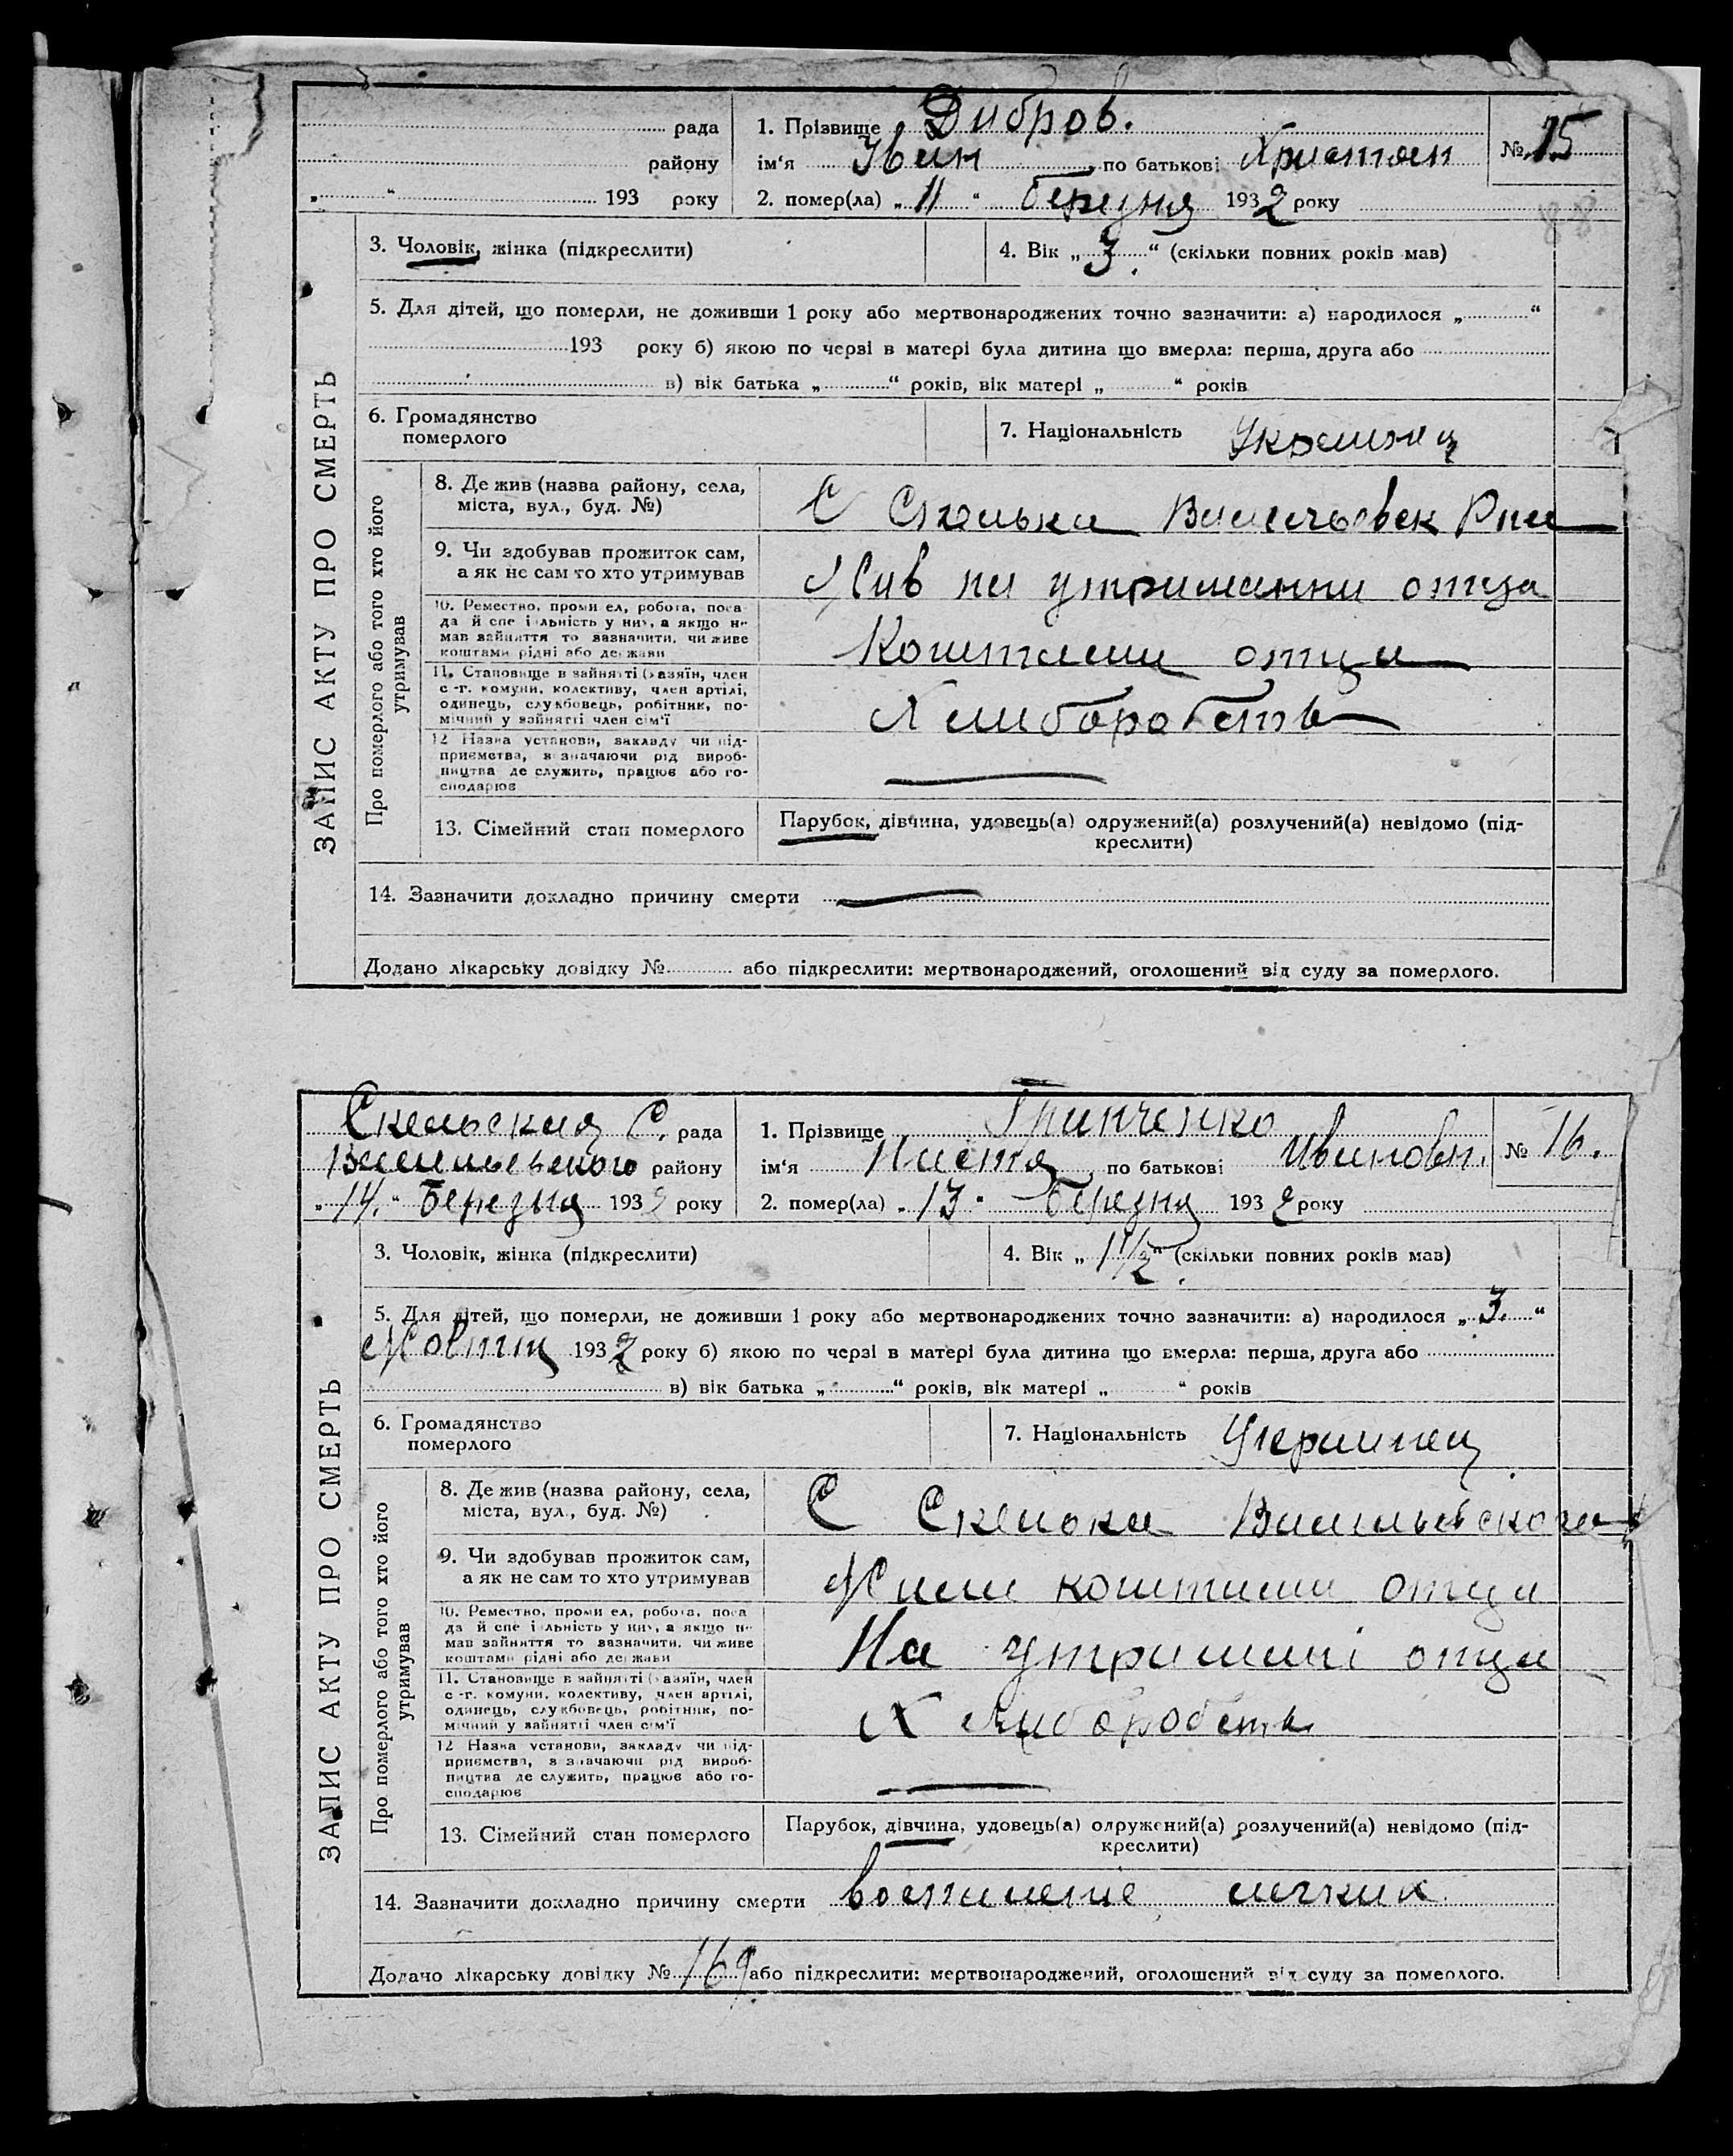 рада
району
„ “ 193 року
1. Прізвище Дибров.
ім‘я Іван по батькові Христіан
2. помер(ла) „11“ березня 1932 року
№ 15
ЗАПИС АКТУ ПРО СМЕРТЬ
3. Чоловік, жінка (підкреслити)
4. Вік „3.“ (скільки повних років мав)
5. Для дітей, що померли, не доживши 1 року або мертвонароджених точно зазначити: а) народилося „ “
193 року б) якою по черзі в матері була дитина що вмерла: перша, друга або
в) вік батька „ “ років, вік матері „ “ років
6. Громадянство
померлого
7. Національність Украинец
Про померлого або того хто його
утримував
8. Де жив (назва району, села,
міста, вул., буд. №)
С Скельки
9. Чи здобував прожиток сам,
а як не сам то хто утримував
Жив на утриманни отца
10. Ремество, промисел, робота, поса-
да й спеціяльність у них, а якщо не
мав зайняття то зазначити, чи живе
коштами рідні або держави
Коштами отца
11. Становище в зайнятті (хазяїн, член
с.-г. комуни, колективу, член артілі,
одинець, службовець, робітник, по-
мічний у зайнятті член сім‘ї
Хлиборобств
12. Назва установи, закладу чи під-
приємства, зазначаючи рід вироб-
ництва де служить, працює або го-
сподарює
13. Сімейний стан померлого
Парубок, дівчина, удовець(а) одружений(а) розлучений(а) невідомо (під-
креслити)
14. Зазначити докладно причину смерти
Додано лікарську довідку № або підкреслити: мертвонароджений, оголошений від суду за померлого.
Скельская С. рада
Васильевського району
„14.“ Березня 1932 року
1. Прізвище Гринченко
ім‘я Настя по батькові Ивановн.
2. помер(ла) „13“ березня 1932 року
№ 16.
ЗАПИС АКТУ ПРО СМЕРТЬ
3. Чоловік, жінка (підкреслити)
4. Вік „1 1/2“ (скільки повних років мав)
5. Для дітей, що померли, не доживши 1 року або мертвонароджених точно зазначити: а) народилося „3.“
Жовтня 1932 року б) якою по черзі в матері була дитина що вмерла: перша, друга або
в) вік батька „ “ років, вік матері „ “ років
6. Громадянство
померлого
7. Національність Украинец
Про померлого або того хто його
утримував
8. Де жив (назва району, села,
міста, вул., буд. №)
С Скельки Васильевского
9. Чи здобував прожиток сам,
а як не сам то хто утримував
Жила коштами отца
10. Ремество, промисел, робота, поса-
да й спеціяльність у них, а якщо не
мав зайняття то зазначити, чи живе
коштами рідні або держави
На утримані отца
11. Становище в зайнятті (хазяїн, член
с.-г. комуни, колективу, член артілі,
одинець, службовець, робітник, по-
мічний у зайнятті член сім‘ї
Хлиборобств
12. Назва установи, закладу чи під-
приємства, зазначаючи рід вироб-
ництва де служить, працює або го-
сподарює
13. Сімейний стан померлого
Парубок, дівчина, удовець(а) одружений(а) розлучений(а) невідомо (під-
креслити)
14. Зазначити докладно причину смерти воспаление легких
Додано лікарську довідку № 169 або підкреслити: мертвонароджений, оголошений від суду за померлого.